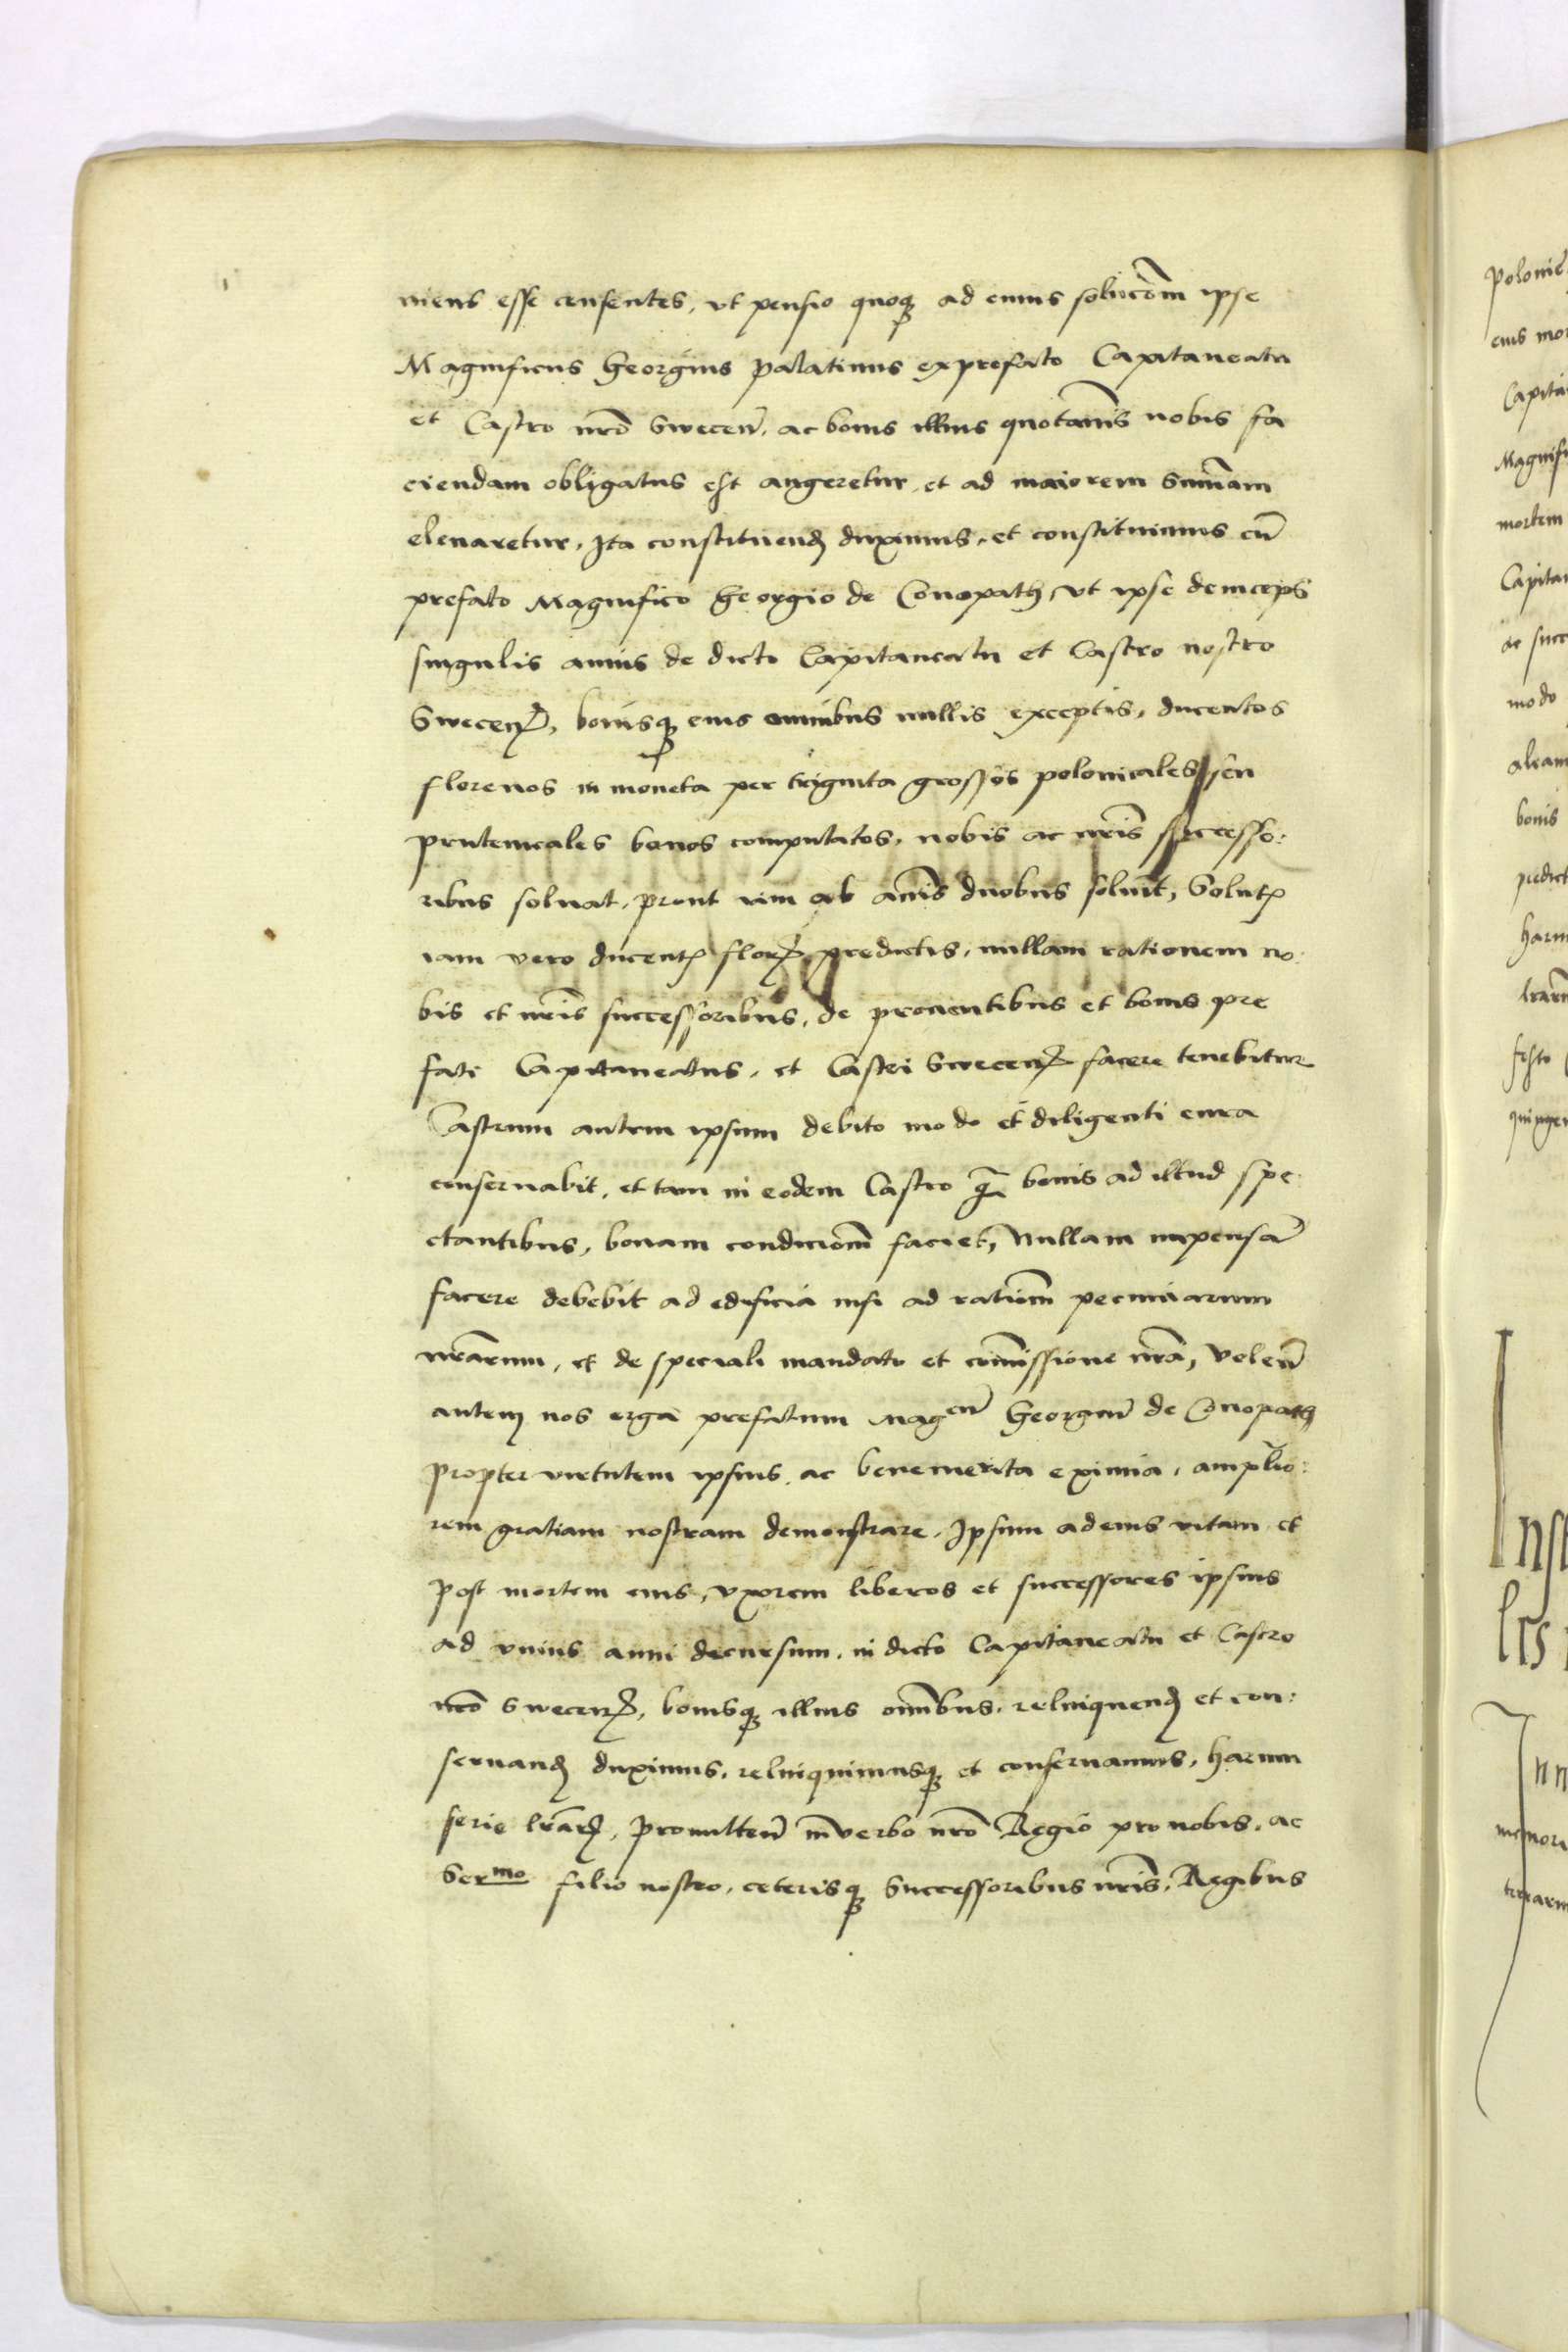 niens esse censentes, vt pensio quoq; ad cuius solucōm ipse
Magnificus Georgius palatinus ex prefato Capitaneatu
et Castro nrō Swecen̄. ac bonis illius quotannis nobis fa
ciendam obligatus est augeretur, et ad maiorem Sum̄am
eleuaretur, Ita constituend̨ duximus, et constituimus cū
prefato Magnifico Georgio de Conopath, vt ipse deinceps
singulis annis de dicto Capitaneatu et Castro nostro
Swecen̄, bonisq; eius omnibus nullis exceptis, ducentos
florenos in moneta per triginta grossos polonicales seu
prutenicales bonos computatos, nobis ac nr̄is successo:
ribus soluat, prout iam ab annis duobus soluit, Solutꝭ
iam vero ducentꝭ floꝝ predictis, nullam rationem no:
bis et nr̄is successoribus, de prouentibus et bonis pre
fati Capitaneatus, et Castri Swecen̄ facere tenebitur
Castrum autem ipsum debito modo et diligenti cura
conseruabit, et tam in eodem Castro q̄ bonis ad illud spe
ctantibus, bonam condiciōm faciet, Nullam impensā
facere debebit ad edificia nisi ad ratiōm pecuniarum
nr̄arum, et de speciali mandato et com̄issione nr̄a, Volen̄
autem nos erga prefatum Mag^cū Georgiū de Conopath
propter virtutem ipsius, ac benemerita eximia, amplio:
rem gratiam nostram demonstrare, Ipsum ad eius vitam et
post mortem eius, vxorem liberos et successores ipsius
ad vnius anni decursum, in dicto Capitaneatu et Castro
nrō Swecen̄, bonisq; illius om̄ibus, relinquend̨ et con:
seruand̨ duximus, relinquimusq; et conseruamus, harum
serie lr̄arꝝ, promitten̄ in verbo nrō Regio pro nobis, ac
Ser^mo filio nostro, ceterisq; Successoribus nr̄is, Regibus
Polonie
eius mor
Capita
Magnifi
mortem
Capitan
ac succ
modo
bonis
predict
festo
quingen